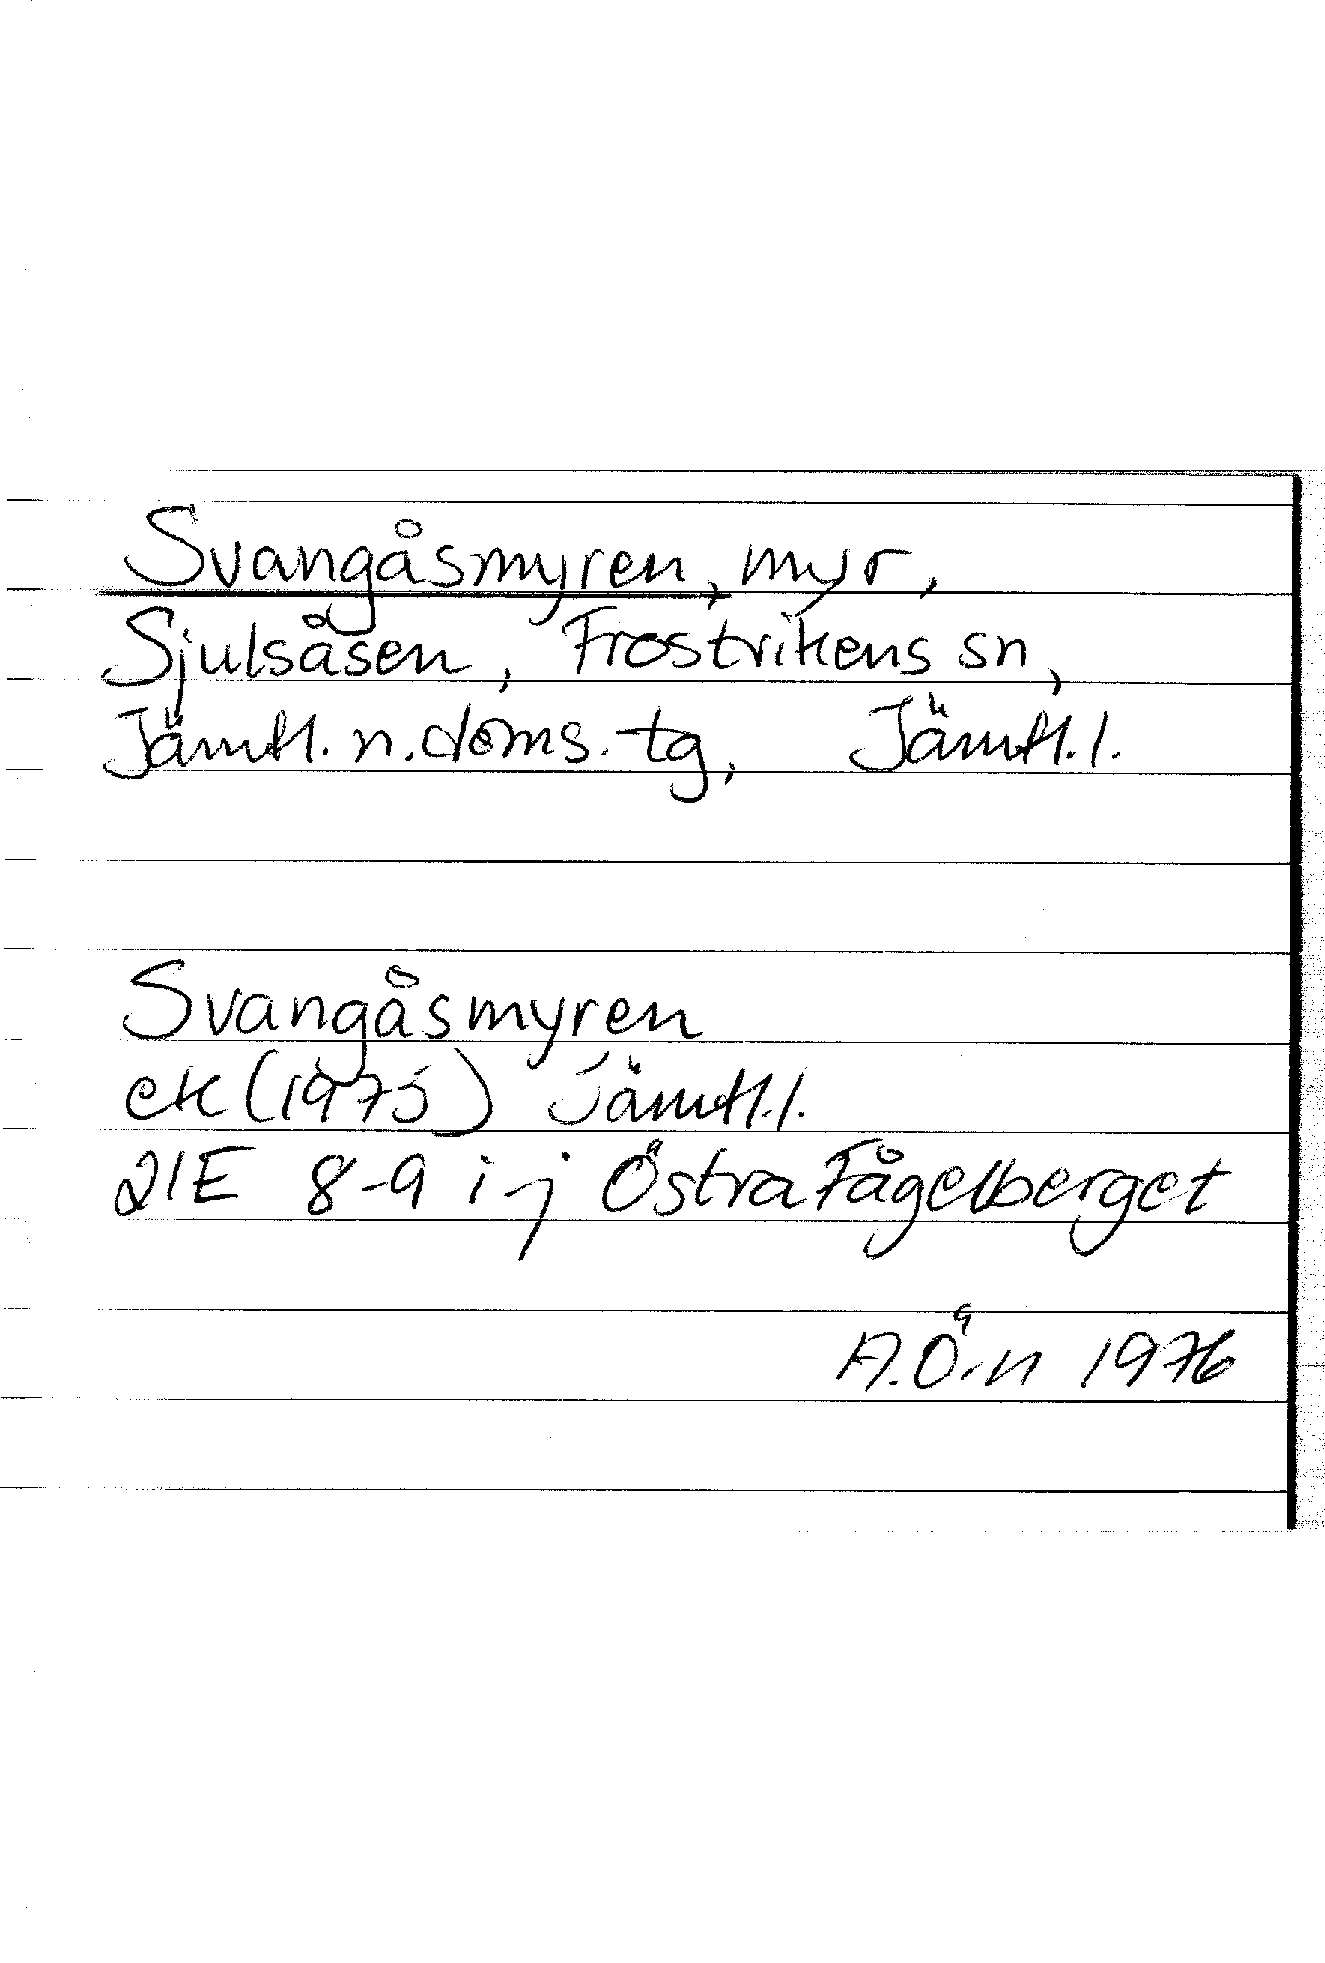 Svangåsmyren, myr,
Sjulsåsen, Frostvikens sn,
Jämtl. n. doms. tg, Jämtl. l.
Svangåsmyren
ek (1975) Jämtl. l.
21E 8-9 i-j Östra Fågelberget
A. Ö-n 1976